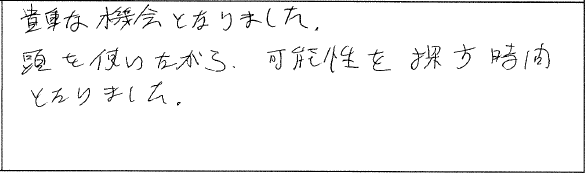 貴重な機会となりました。
頭を使いながら、可能性を探す時間
となりました。